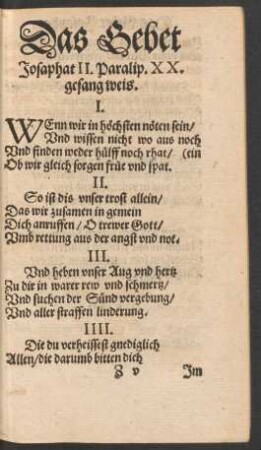 Das Gebet
Josaphat II. Paralip. XX.
gesang weis.
I.
WEnn wir in höchsten nöten sein/
Vnd wissen nicht wo aus noch
Vnd finden weder hülff noch rhat/ (ein
Ob wir gleich sorgen früe vnd spat.
II.
So ist dis vnser trost allein/
Das wir zusamen in gemein
Dich anruffen/ O trewer Gott/
Vmb rettung aus der angst vnd not.
III.
Vnd heben vnser Aug vnd hertz
Zu dir in warer rew vnd schmertz/
Vnd suchen der Sünd vergebung/
Vnd aller straffen linderung.
IIII.
Die du verheissest gnediglich
Allen/ die darumb bitten dich
Z v Im